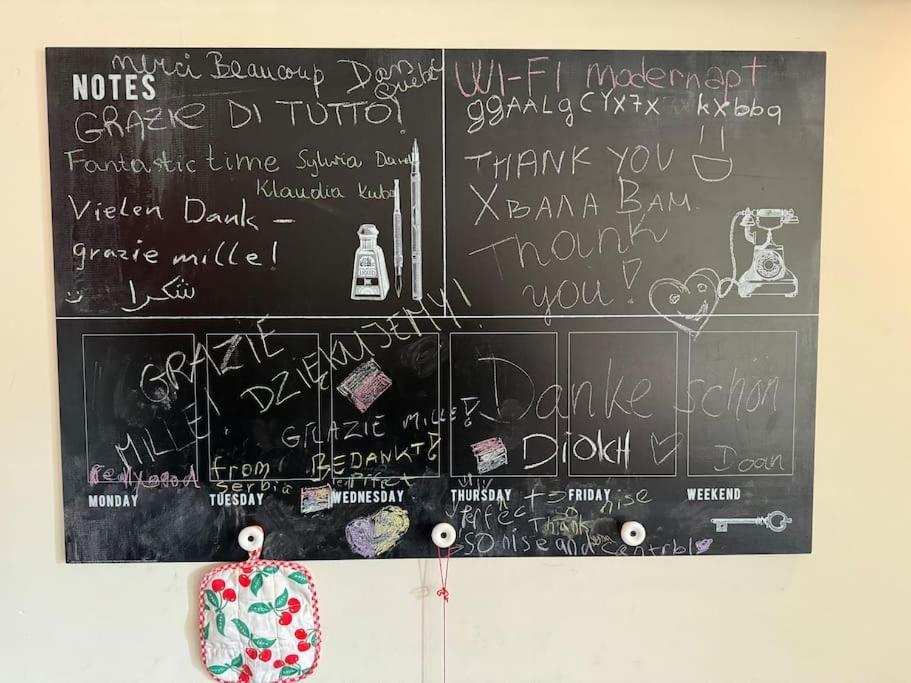 merci Beaucoup Dan
NOTES
GRAZIE DI TUTTO!
Fantastic time Sylwia Daniel
Klaudia Kuba
Vielen Dank -
grazie mille!
شكرا
LIQUID
WI-FI modernapt
ggAALgCYX7X kXbbq
THANK YOU
ХВАЛА ВАМ
Thank
you!
GRAZIE
MILLE!
DZIĘKUJEMY!
GRAZIE MILLE!
BEDANKT!
from
Serbia
Danke schön
DIOKH
Doan
MONDAY
TUESDAY
WEDNESDAY
THURSDAY
FRIDAY
WEEKEND
Perfect nise
Thank
SO nise and